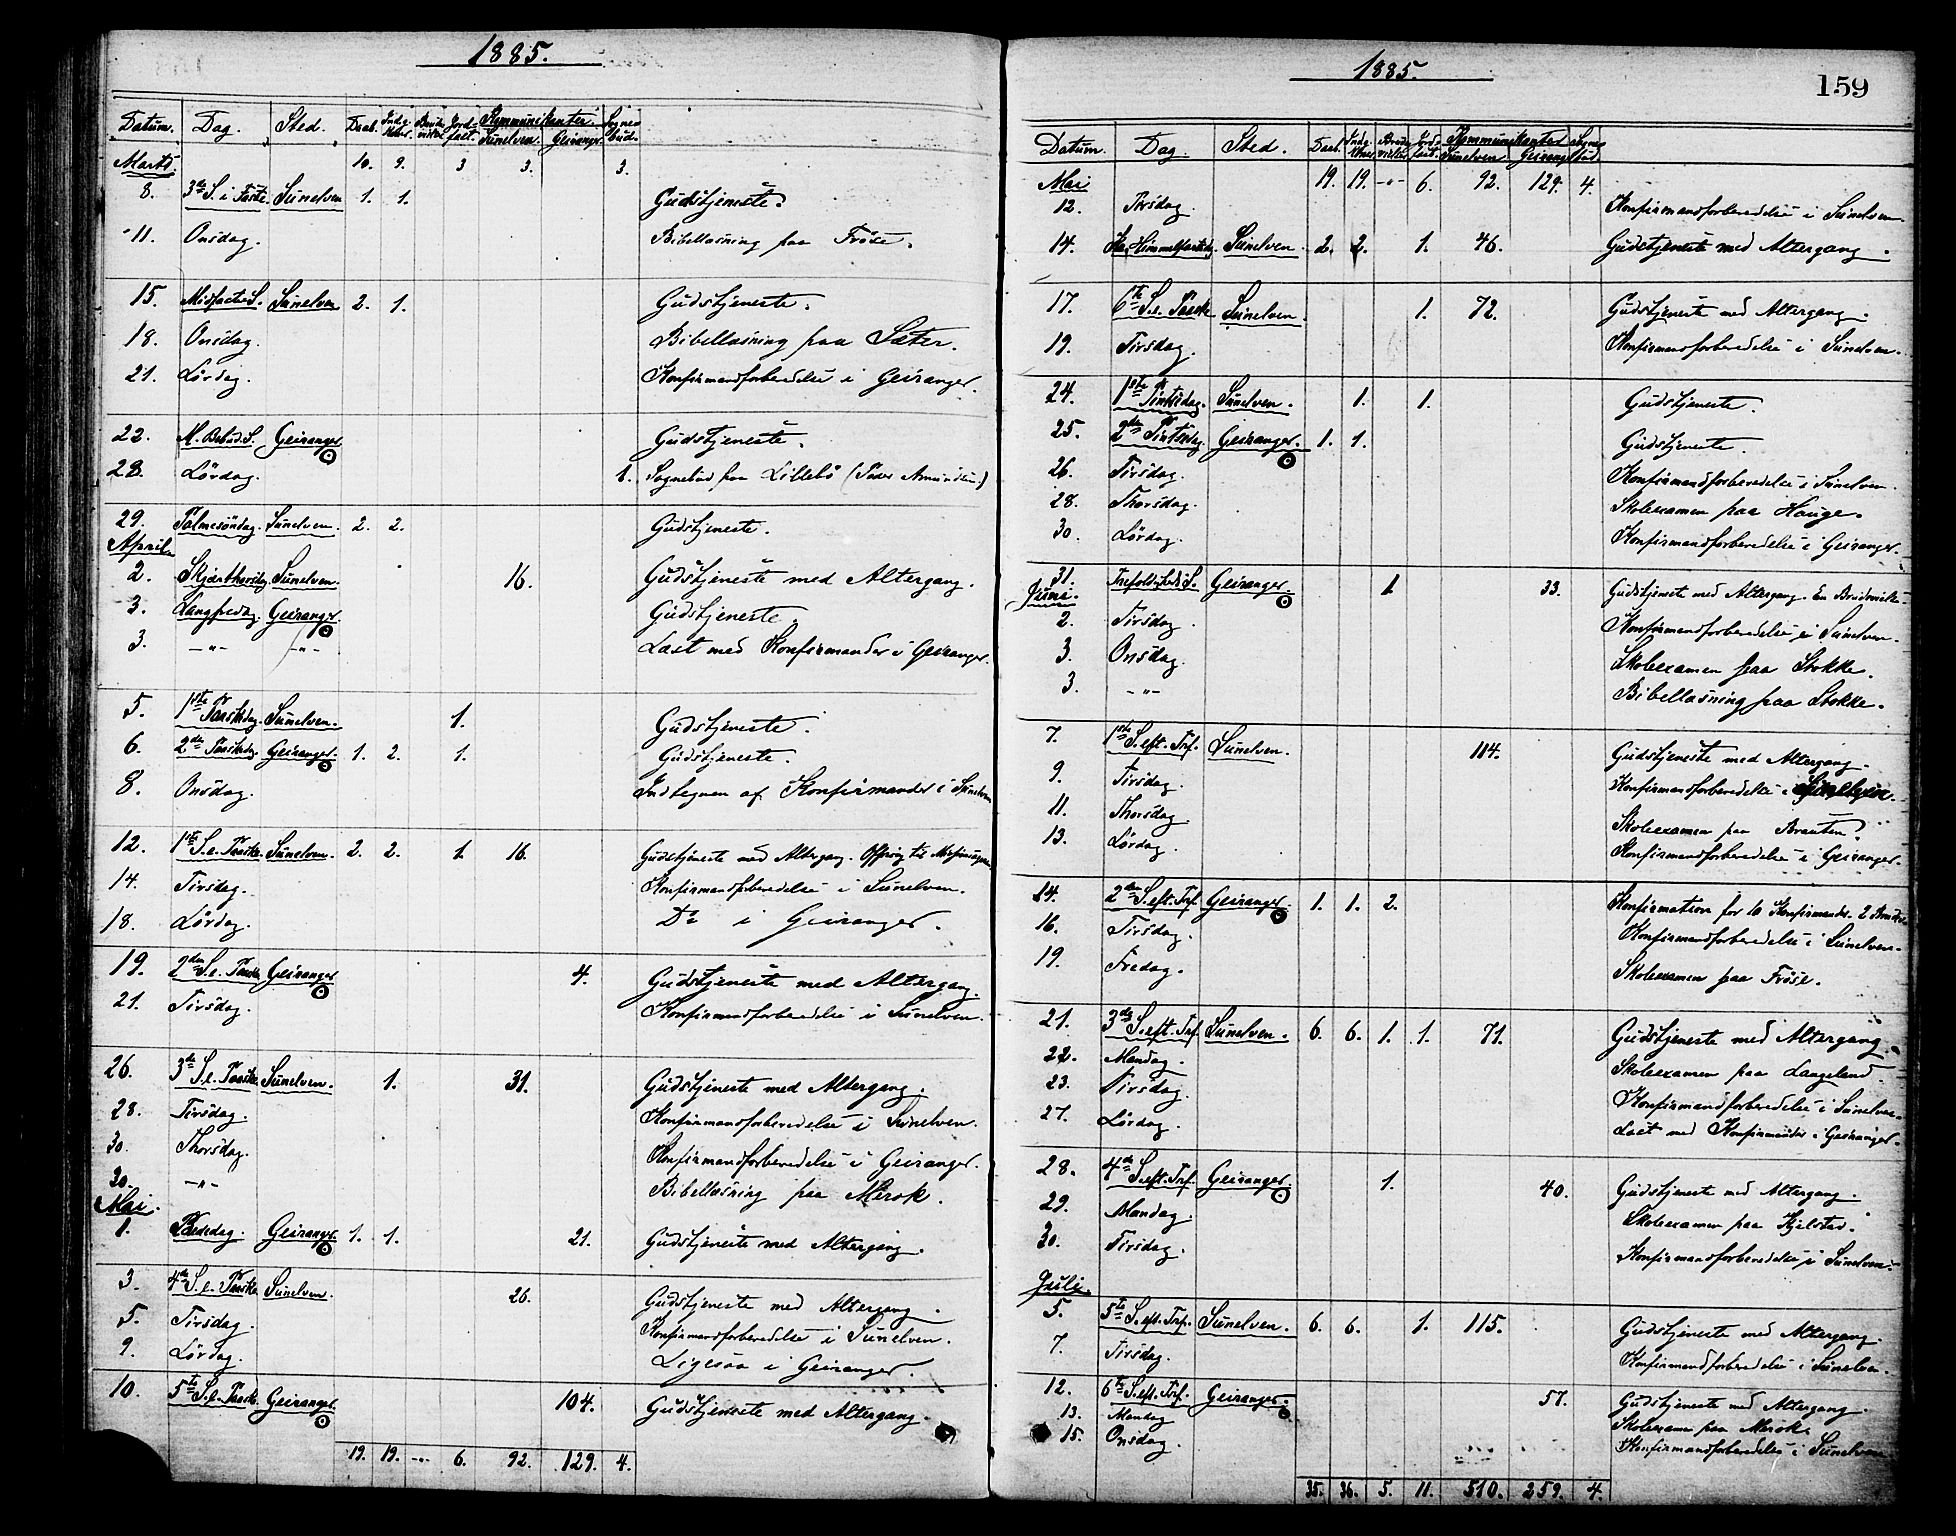 1885.
Datum. Dag. Sted. Daab. Indg. Kmer. Brude vielse Jord fæst. Kommunikanter. Sunelven. Geiranger. Sogne bud.
Marts. 10. 9. 3 3. 3.
8. 3die S. i Faste. Sunelven 1. 1. Gudstjeneste.
11. Onsdag. Bibellæsning paa Frøise.
15. Midfaste S. Sunelven 2. 1. Gudstjeneste.
18. Onsdag. Bibellæsning paa Sæter.
21. Lördag. Konfirmandforberedelse i Geiranger.
22. M. Bebud. S. Geiranger Gudstjeneste.
28. Lördag. 1. Sognebud paa Lillebö (Peder Amundsen.)
29. Palmesöndag. Sunelven. 2. 2. Gudstjeneste.
April.
2. Skjærthorsdag Sunelven. 16. Gudstjeneste med Altergang.
3. Langfredag Geiranger. Gudstjeneste.
3. —"— —"— Læst med Konfirmander i Geiranger.
5. 1ste Paaskedag. Sunelven. 1. Gudstjeneste.
6. 2den Paaskedag. Geiranger. 1. 2. 1. Gudstjeneste.
8. Onsdag. Indtegnen af Konfirmander i Sunelven
12. 1ste S. e. Paaske. Sunelven. 2. 2. 1. 16. Gudstjeneste med Altergang. Offring til
14. Tirsdag. Konfirmandforberedelse i Sunelven.
18. Lördag. Do i Geiranger.
19. 2den S. e. Paaske Geiranger 4. Gudstjeneste med Altergang.
21. Tirsdag. Konfirmandforberedelse i Sunelven.
26. 3die S. e. Paaske. Sunelven. 1. 31. Gudstjeneste med Altergang.
28. Tirsdag. Konfirmandforberedelse i Sunelven.
30. Thorsdag. Konfirmandforberedelse i Geiranger.
30. —"— Bibellæsning paa Merok.
Mai.
1. Bededag. Geiranger. 1. 1. 21. Gudstjeneste med Altergang.
3. 4de S. e. Paaske Sunelven. 26. Gudstjeneste med Altergang.
5. Tirsdag. Konfirmandforberedelse i Sunelven.
9. Lördag. Ligesaa i Geiranger.
10. 5te S. e. Paaske. Geiranger. 104. Gudstjeneste med Altergang.
19. 19. -"- 6. 92. 129. 4.
1885.
159
Datum. Dag. Sted. Daab. Indg. Kmer Brude vielse Jord fæst. Kommunikanter Sunelven. Geiranger Sogne bud
Mai 19. 19. -"- 6. 92. 129. 4.
12. Tirsdag. Konfirmandforberedelse i Sunelven.
14. Kr. Himmelfartsdag Sunelven. 2. 2. 1. 46. Gudstjeneste med Altergang.
17. 6te S. e. Paaske Sunelven. 1. 72. Gudstjeneste med Altergang.
19. Tirsdag. Konfirmandforberedelse i Sunelven.
24. 1ste Pintsedag. Sunelven. 1. 1. Gudstjeneste.
25. 2den Pintsedag. Geiranger. 1. 1. Gudstjeneste.
26. Tirsdag. Konfirmandforberedelse i Sunelven.
28. Thorsdag. Skoleexamen paa Hauge.
30. Lördag. Konfirmandforberedelse i Geiranger.
31. Trefoldigheds S. Geiranger. 1 33. Gudstjeneste med Altergang. En Brudevielse.
Juni.
2. Tirsdag. Konfirmandforberedelse i Sunelven.
3. Onsdag. Skoleexamen paa Stokke.
3. —"— Bibellæsning paa Stokke.
7. 1ste S. eft. Tref. Sunelven. 114. Gudstjeneste med Altergang.
9. Tirsdag. Konfirmandforberedelse i Sunelven.
11. Thorsdag. Skoleexamen paa
13. Lördag. Konfirmandforberedelse i Geiranger.
14. 2den S. eft. Tref. Geiranger. 1. 1. 2. Konfirmation for 10 Konfirmander. 2
16. Tirsdag. Konfirmandforberedelse i Sunelven.
19. Fredag. Skoleexamen paa Frøise.
21. 3die S. eft. Tref. Sunelven. 6. 6. 1. 1. 71. Gudstjeneste med Altergang.
22. Mandag. Skoleexamen paa Langeland.
23. Tirsdag. Konfirmandforberedelse i Sunelven.
27. Lördag. Læst med Konfirmander i Geiranger.
28. 4de S. eft. Tref. Geiranger. 1. 40. Gudstjeneste med Altergang.
29. Mandag. Skoleexamen paa Hjelstad.
30. Tirsdag. Konfirmandforberedelse i Sunelven.
Juli.
5. 5te S. eft. Tref. Sunelven. 6. 6. 1. 115. Gudstjeneste med Altergang.
7. Tirsdag. Konfirmandforberedelse i Sunelven.
12. 6te S. eft. Tref. Geiranger. 57. Gudstjeneste med Altergang.
13. Mandag Skoleexam paa Merok.
15. Onsdag. Konfirmandforberedelse i Sunelven
35. 36. 5. 11. 510. 259. 4.